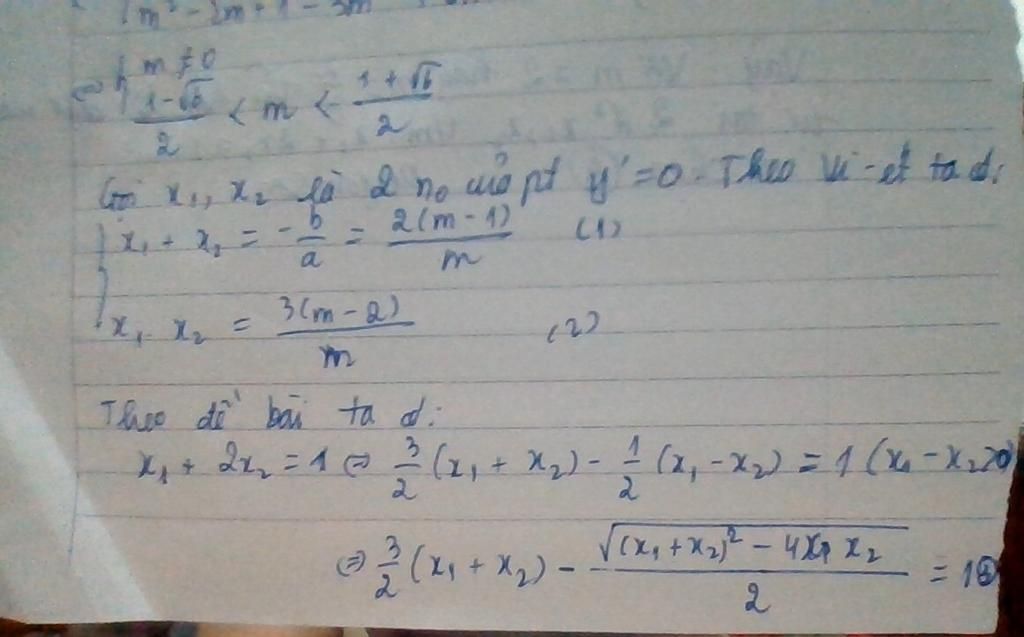 m² - 2m + 1 - 3m
⇔ { m ≠ 0
(1-√6)/2 < m < (1+√6)/2
Gọi x₁, x₂ là 2 no của pt y' = 0. Theo Vi-et ta d:
{ x₁ + x₂ = -b/a = 2(m-1)/m (1)
x₁ . x₂ = 3(m-2)/m (2)
Theo đề bài ta d:
x₁ + 2x₂ = 1 ⇔ 3/2 (x₁ + x₂) - 1/2 (x₁ - x₂) = 1 (x₁ - x₂ > 0)
⇔ 3/2 (x₁ + x₂) - √((x₁ + x₂)² - 4x₁ x₂)/2 = 1